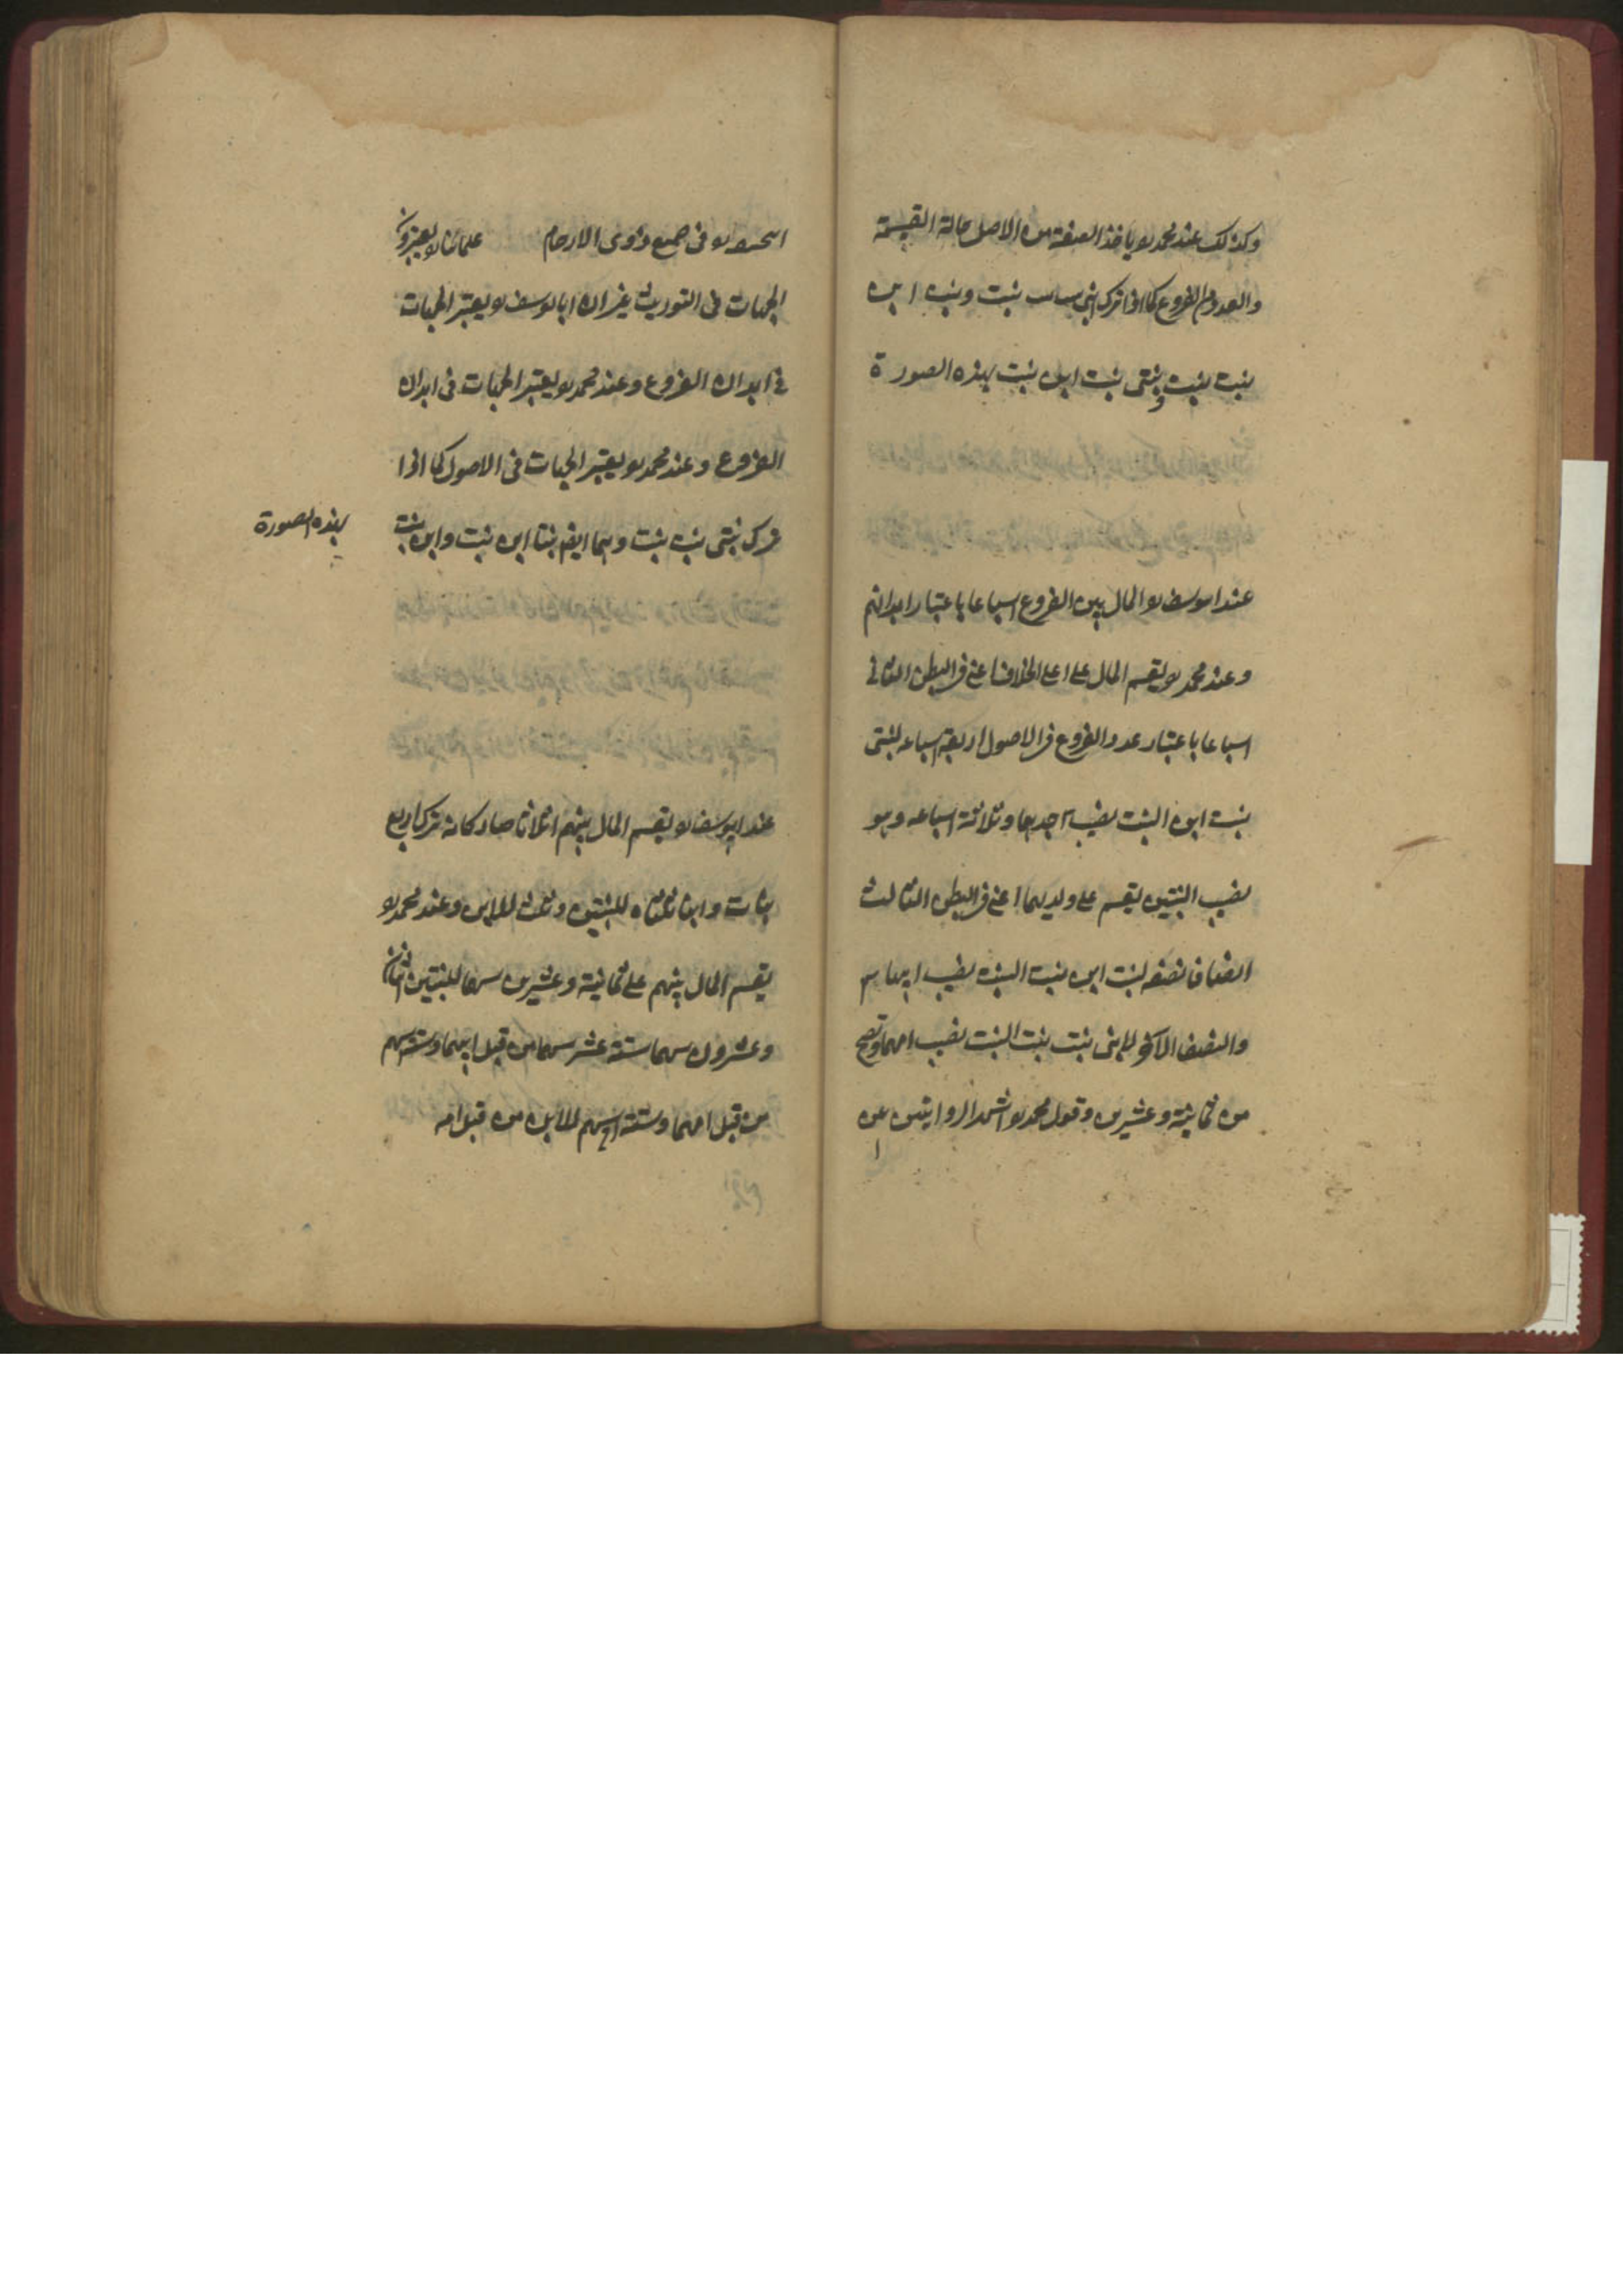 وكذلك عند محمد رح ياخذ الصفة من الاصل حالة القسمة
والعدد من الفروع كما اذا ترك ابنى بنت بنت بنت وبنت ابن
بنت بنت وبنتى بنت ابن بنت بهذه الصورة
عند ابو يوسف رح المال بين الفروع اسباعا باعتبار ابدانهم
وعند محمد رح يقسم المال على اعلى الخلاف اعنى فى البطن الثانى
اسباعا باعتبار عدد الفروع فى الاصول اربعة اسباعه لبنتى
بنت ابن البنت نصيب جدهما وثلاثة اسباعه وهو
نصيب البنتين يقسم على ولديهما اعنى فى البطن الثالث
انصافا نصفه لبنت ابن بنت البنت نصيب ابيها
والنصف الاخر لابنى بنت بنت البنت نصيب امهما وتصح
من ثمانية وعشرين وقول محمد رح اشهر الروايتين عن
فى جميع ذوى الارحام علمائنا رح يعتبرون
الجهات فى التوريث غير ان ابا يوسف رح يعتبر الجهات
فى ابدان الفروع وعند محمد رح يعتبر الجهات فى ابدان
الفروع وعند محمد رح يعتبر الجهات فى الاصول كما اذا
ترك بنتى بنت بنت وهما ايضا بنتا ابن بنت وابن بنت بنت
بهذه الصورة
عند ابو يوسف رح يقسم المال بينهم اثلاثا صار كانه ترك اربع
بنات وابنا ثلثاه للبنتين وثلث للابن وعند محمد رح
يقسم المال بينهم على ثمانية وعشرين سهما للبنتين اثنان
وعشرون سهما ستة عشر سهما من قبل ابيهما وستة اسهم
من قبل امهما وستة اسهم للابن من قبل امه